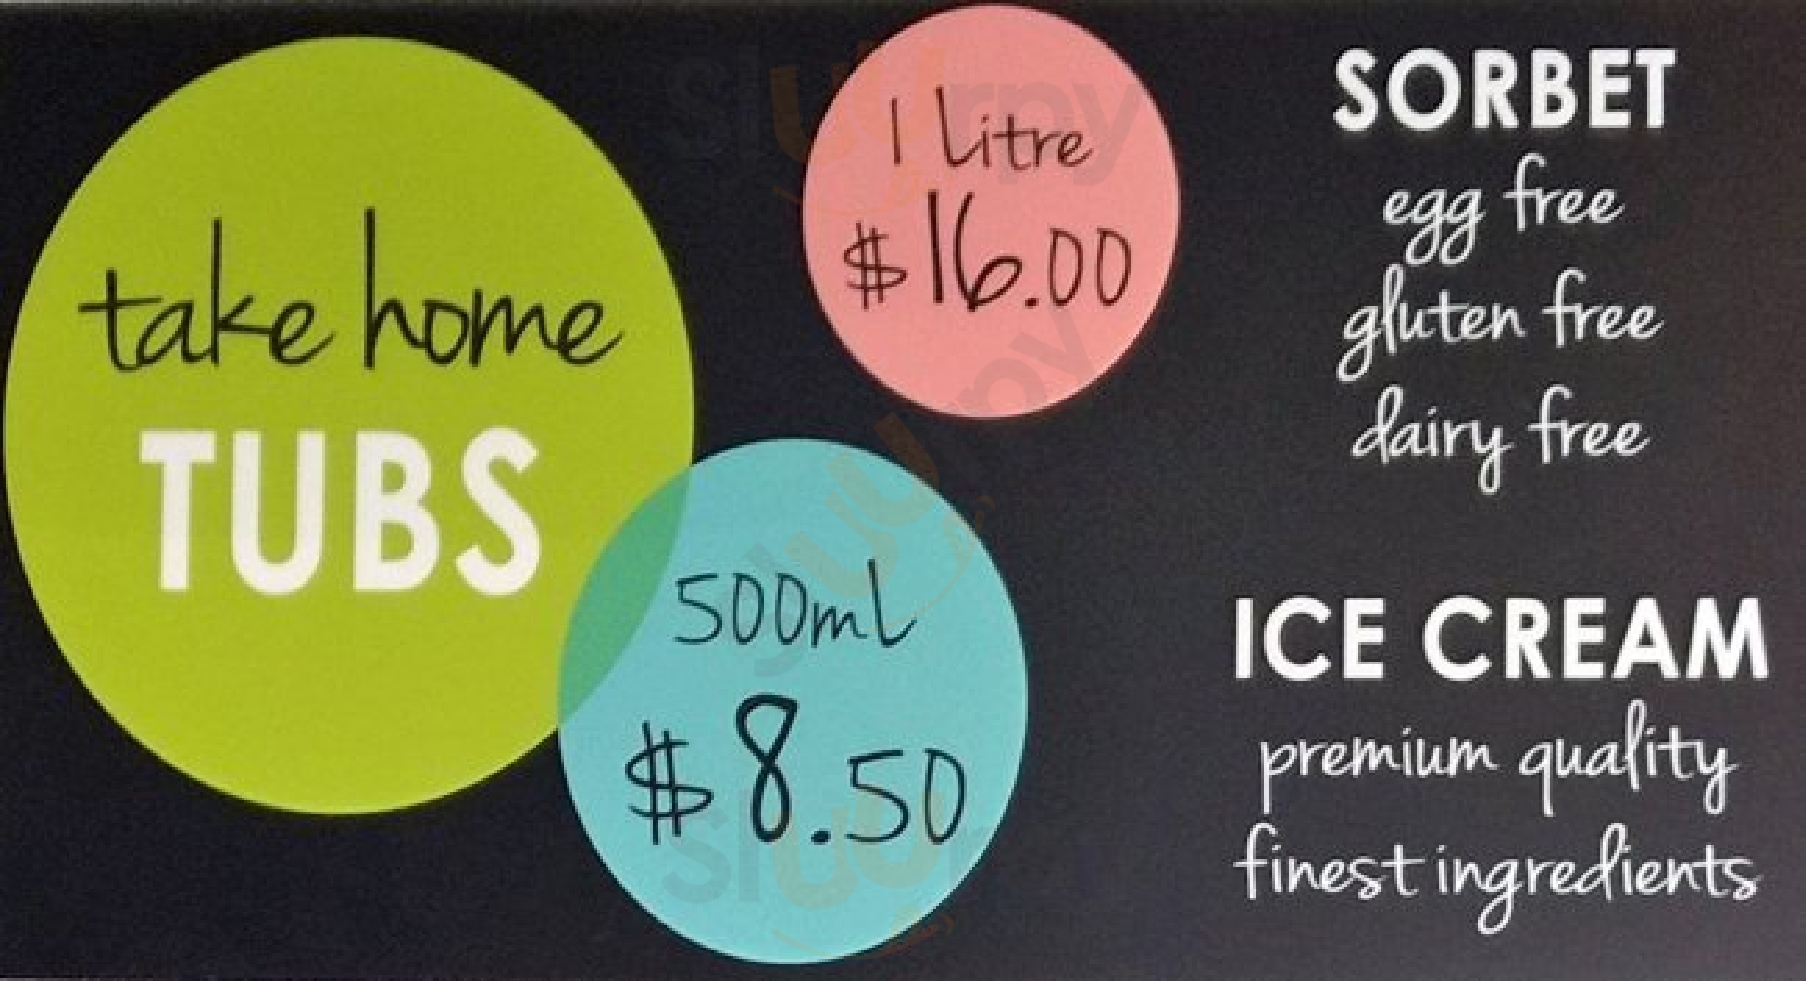 take home
TUBS
1 Litre
$16.00
500ml
$8.50
SORBET
egg free
gluten free
dairy free
ICE CREAM
premium quality
finest ingredients
sluurpy
sluurpy
sluurpy